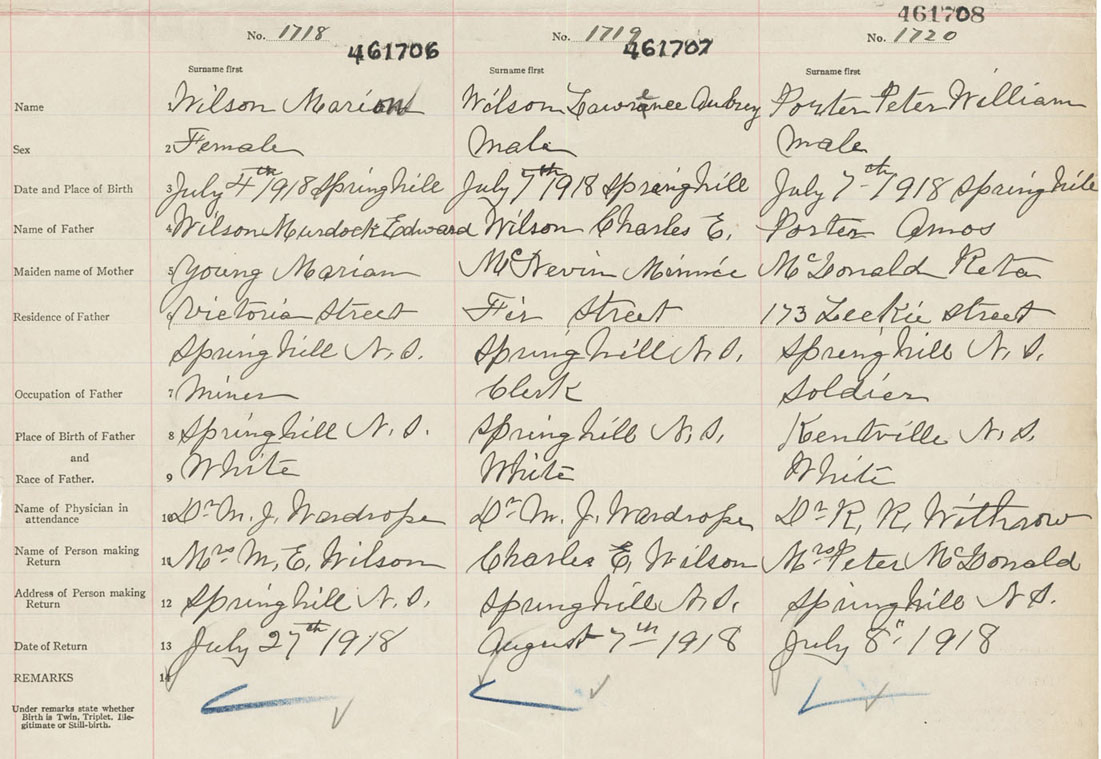 461708
No. 1718 No. 1719 No. 1720
461706 461707
Surname first Surname first Surname first
Name 1 Wilson Marion Wilson Lawrence Aubrey Porter Peter William
Sex 2 Female Male Male
Date and Place of Birth 3 July 4th 1918 Springhill July 7th 1918 Springhill July 7th 1918 Springhill
Name of Father 4 Wilson Murdock Edward Wilson Charles E. Porter Amos
Maiden name of Mother 5 Young Mariam McNevin Minnie McDonald Reta
Residence of Father 6 Victoria Street Fir Street 173 Leckie Street
Springhill N.S. Springhill N.S. Springhill N.S.
Occupation of Father 7 Miner Clerk Soldier
Place of Birth of Father 8 Springhill N.S. Springhill N.S. Kentville N.S.
and
Race of Father. 9 White White White
Name of Physician in
attendance 10 Dr M. J. Wardrope Dr M. J. Wardrope Dr R. R. Withrow
Name of Person making
Return 11 Mrs M. E. Wilson Charles E. Wilson Mrs Peter McDonald
Address of Person making
Return 12 Springhill N.S. Springhill N.S. Springhill N.S.
Date of Return 13 July 27th 1918 August 7th 1918 July 8" 1918
REMARKS 14
Under remarks state whether
Birth is Twin, Triplet, Ille-
gitimate or Still-birth.